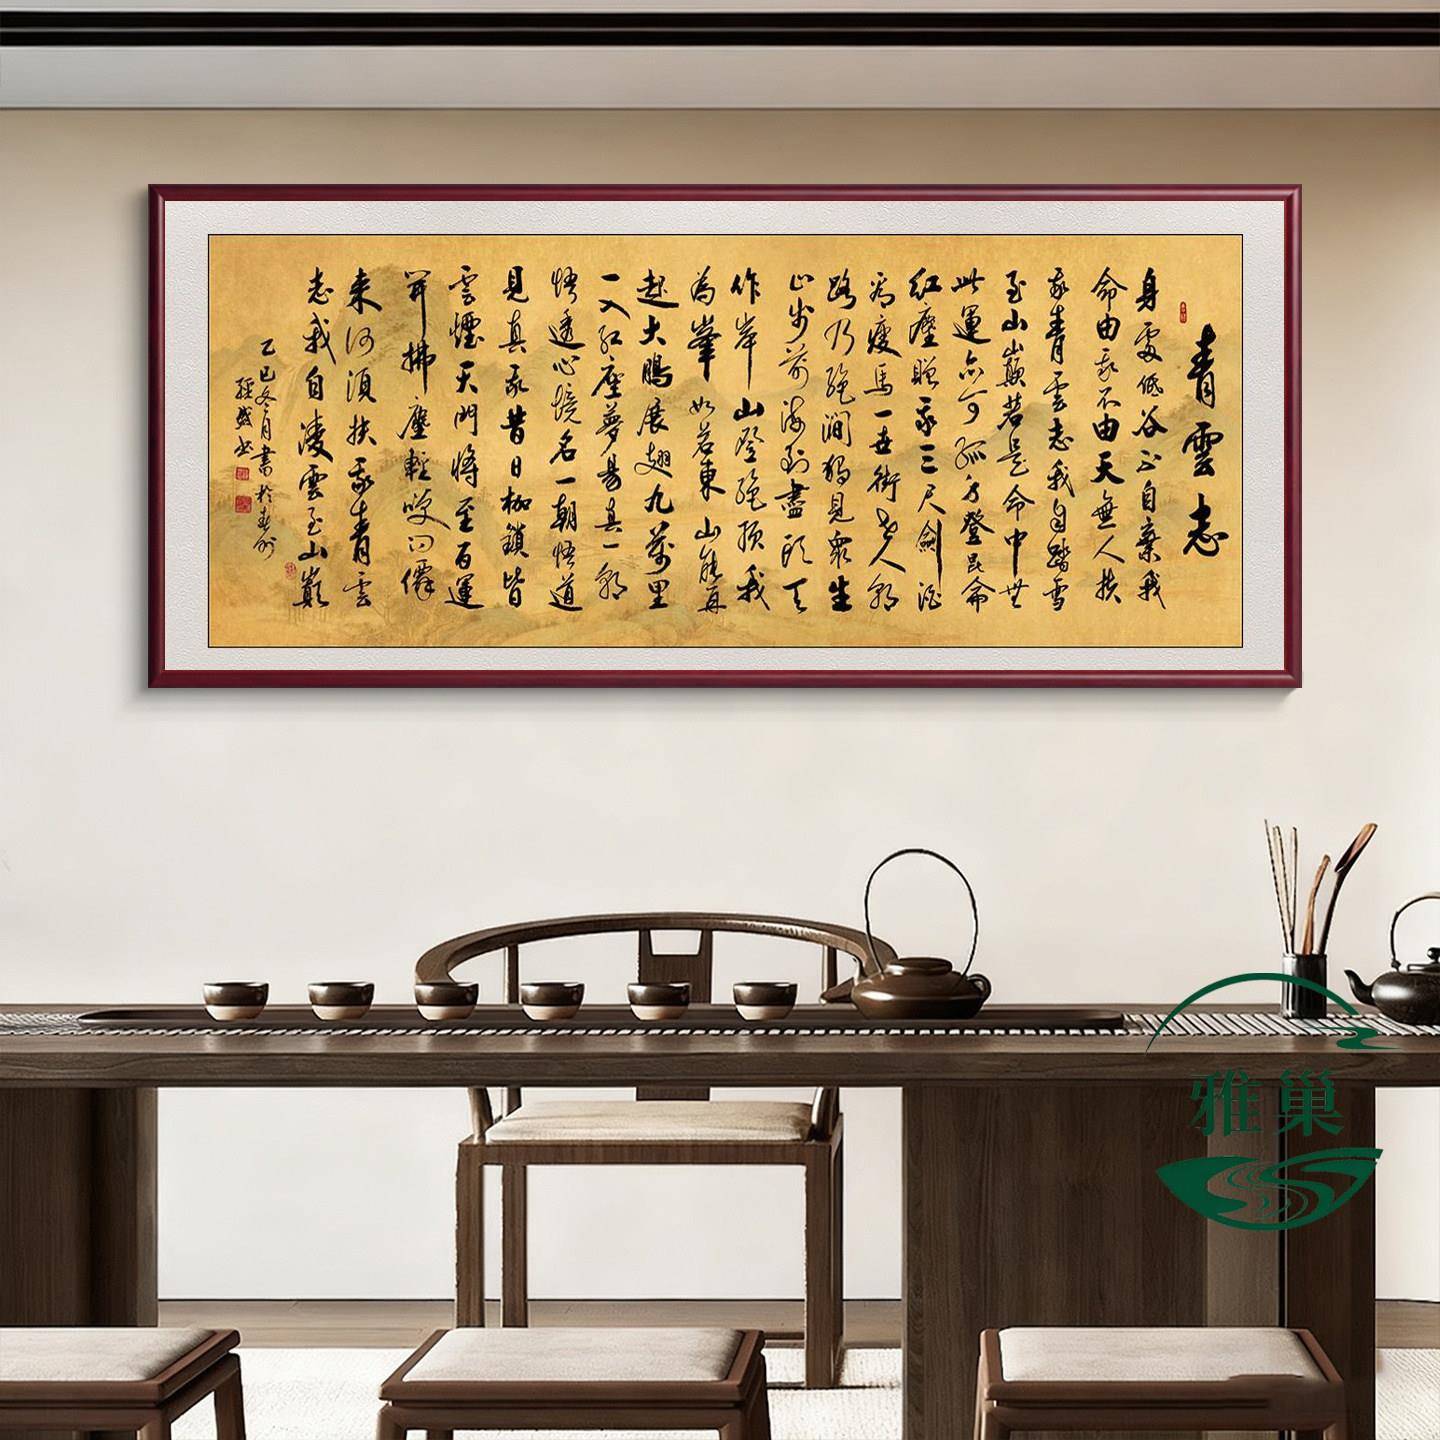 青雲志
身處低谷不自棄我
命由我不由天無人扶
我青雲志我自踏雪
至山巔若是命中無
此運亦可孤身登昆侖
紅塵贈我三尺劍酒
為瘦馬一世街老人邪
路乃絕澗獨見眾生
止步前海到盡頭天
作岸山登絕頂我
為峯如若東山能再
起大鵬展翅九萬里
一入紅塵夢易真一朝
悟透心境名一朝悟道
見真我昔日枷鎖皆
雲煙天門將至百運
開拂塵輕嘆問儒
來何須扶我青雲
志我自凌雲至山巔
乙巳冬月書於
書
雅巢